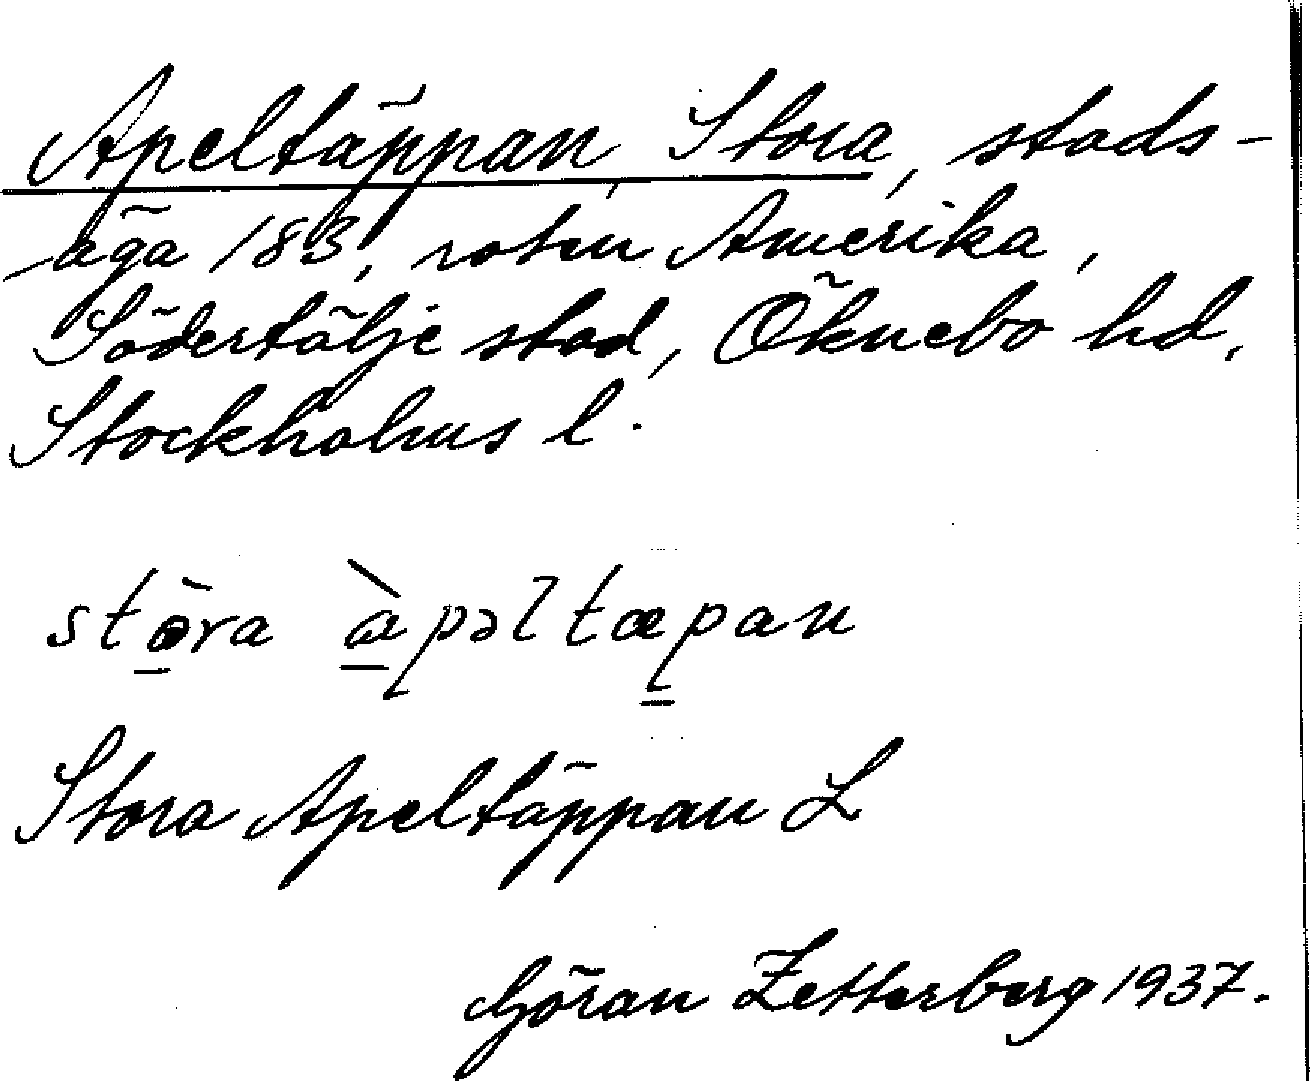 Apeltäppan, Stora, stads-
äga 183, roten Amerika,
Södertälje stad, Öknebo hd,
Stockholms l.
stòra àpəltæpan
Stora Apeltäppan L
Göran Zetterberg 1937.